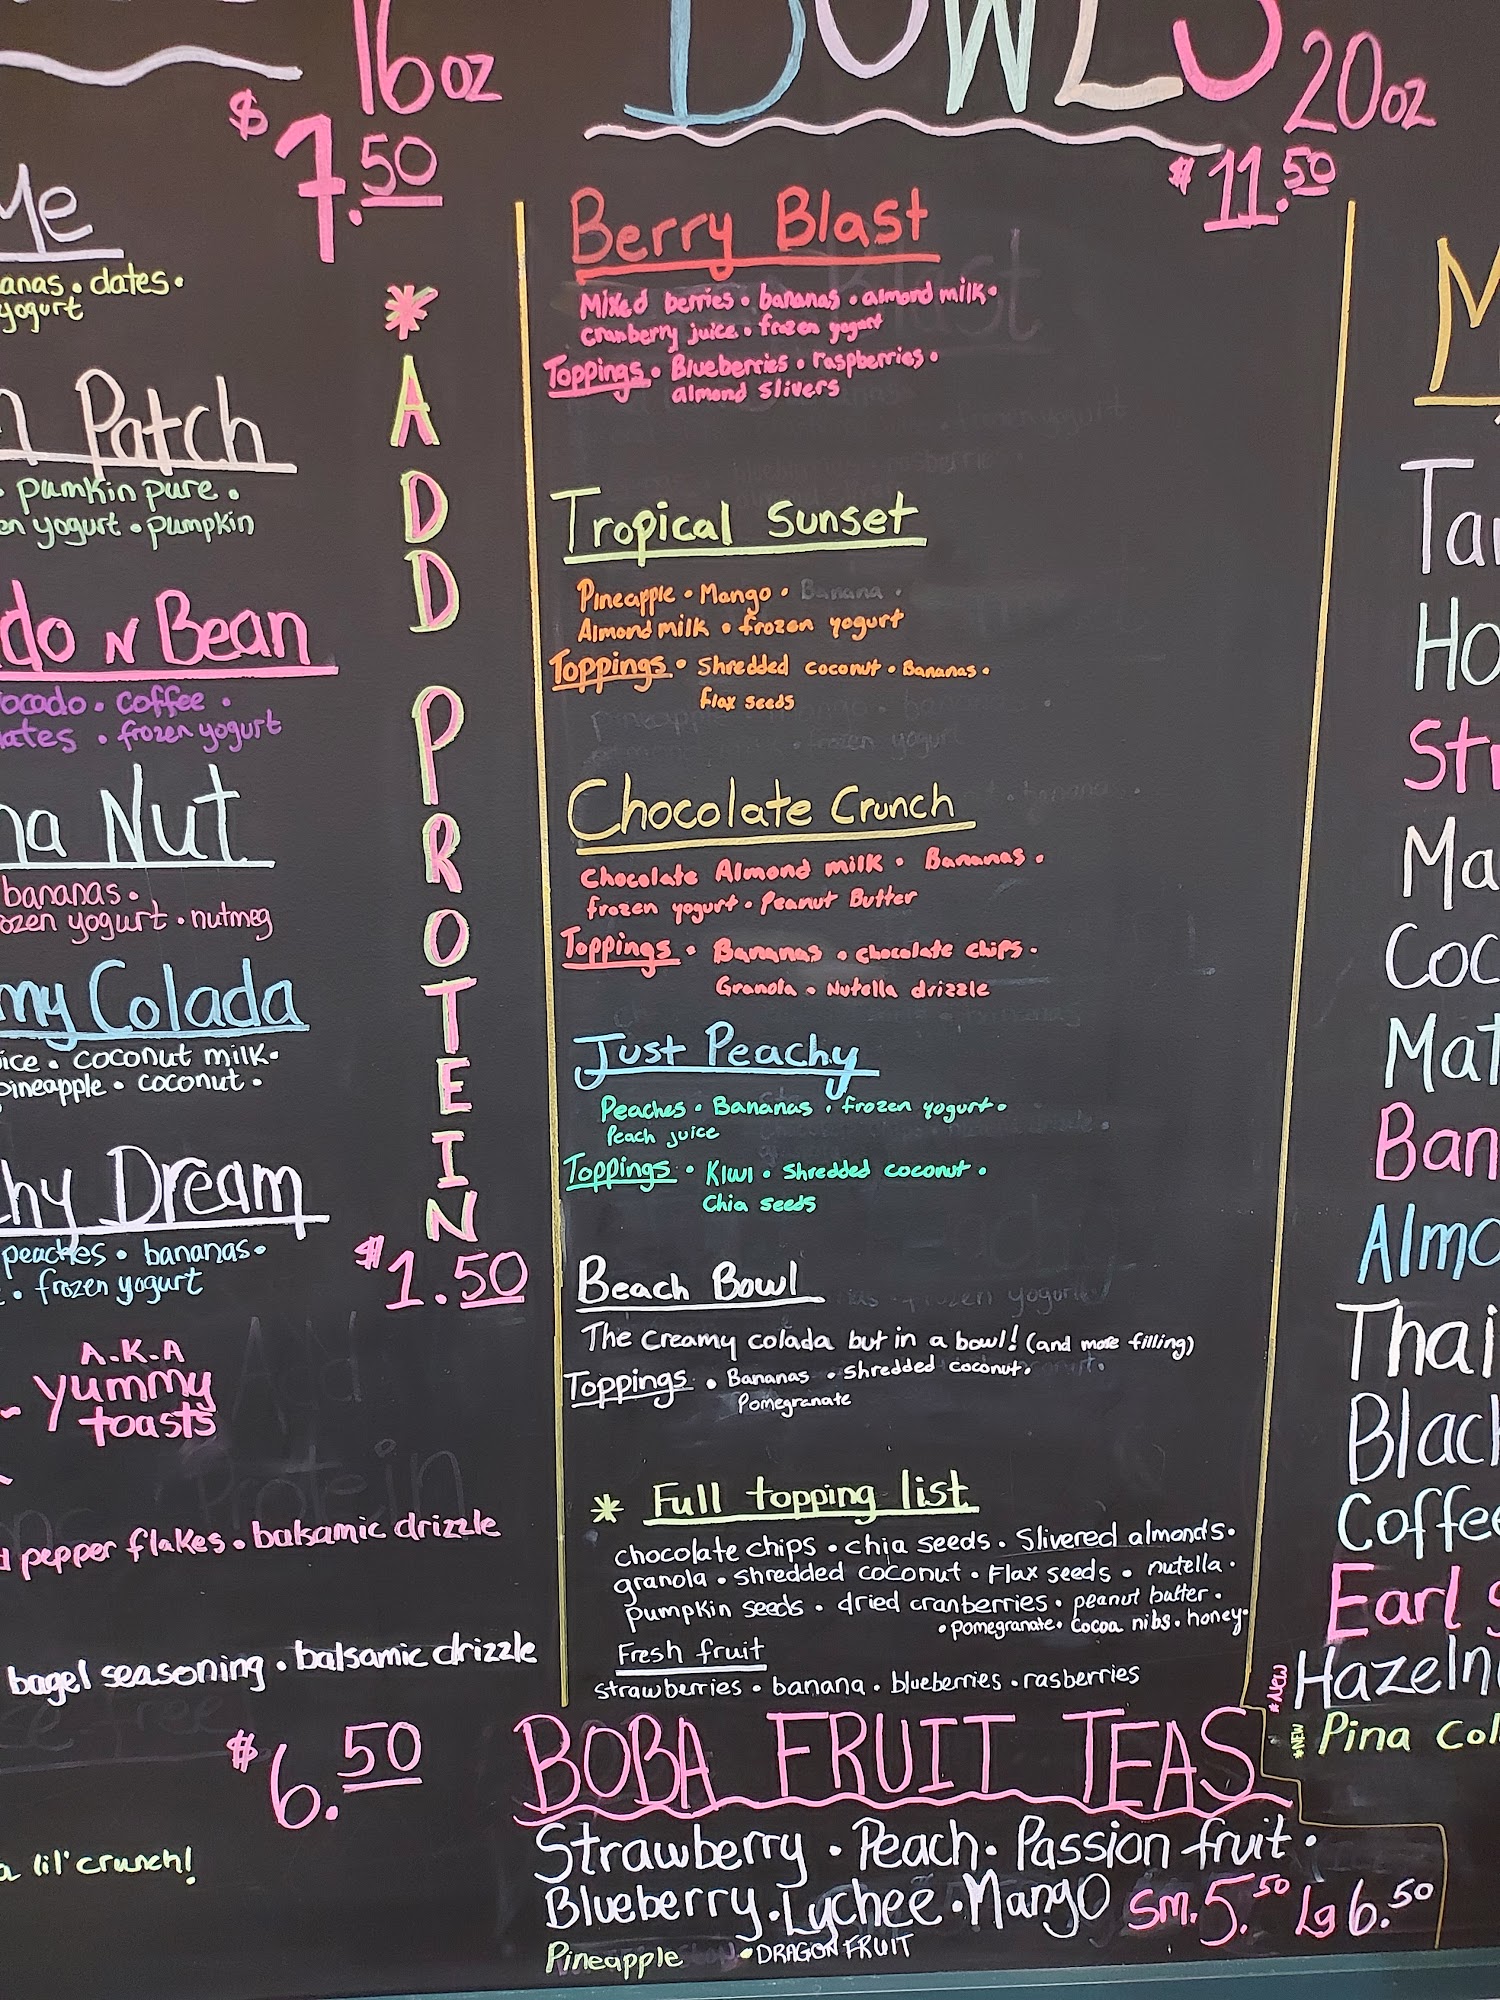 16oz
$7.50
Me
dates.
yogurt
Patch
pumkin pure.
yogurt • pumpkin
N Bean
coffee.
• frozen yogurt
Nut
bananas.
yogurt • nutmeg
Colada
• coconut milk•
pineapple • coconut.
Dream
peaches • bananas•
• frozen yogurt
A.K.A
yummy
toasts
pepper flakes • balsamic drizzle
bagel seasoning • balsamic drizzle
$6.50
a lil' crunch!
* ADD PROTEIN
$1.50
BOWLS 20oz
$11.50
Berry Blast
Mixed berries • bananas • almond milk•
cranberry juice • frozen yogurt
Toppings • Blueberries • raspberries •
almond slivers
Tropical Sunset
Pineapple • Mango • Banana •
Almond milk • frozen yogurt
Toppings • Shredded coconut • Bananas •
Flax seeds
Chocolate Crunch
Chocolate Almond milk • Bananas •
frozen yogurt • Peanut Butter
Toppings • Bananas • chocolate chips •
Granola • Nutella drizzle
Just Peachy
Peaches • Bananas • frozen yogurt •
Peach juice
Toppings • Kiwi • Shredded coconut •
Chia seeds
Beach Bowl
The creamy colada but in a bowl! (and more filling)
Toppings • Bananas • Shredded coconut •
Pomegranate
* Full topping list
chocolate chips • chia seeds • Slivered almonds•
granola • shredded coconut • Flax seeds • nutella •
pumpkin seeds • dried cranberries • peanut butter •
• pomegranate • cocoa nibs • honey•
Fresh fruit
strawberries • banana • blueberries • rasberries
BOBA FRUIT TEAS
Strawberry • Peach • Passion fruit •
Blueberry • Lychee • Mango Sm. 5.50 Lg 6.50
Pineapple • DRAGON FRUIT
Thai
Coffee
Earl
*NEW
*NEW Pina